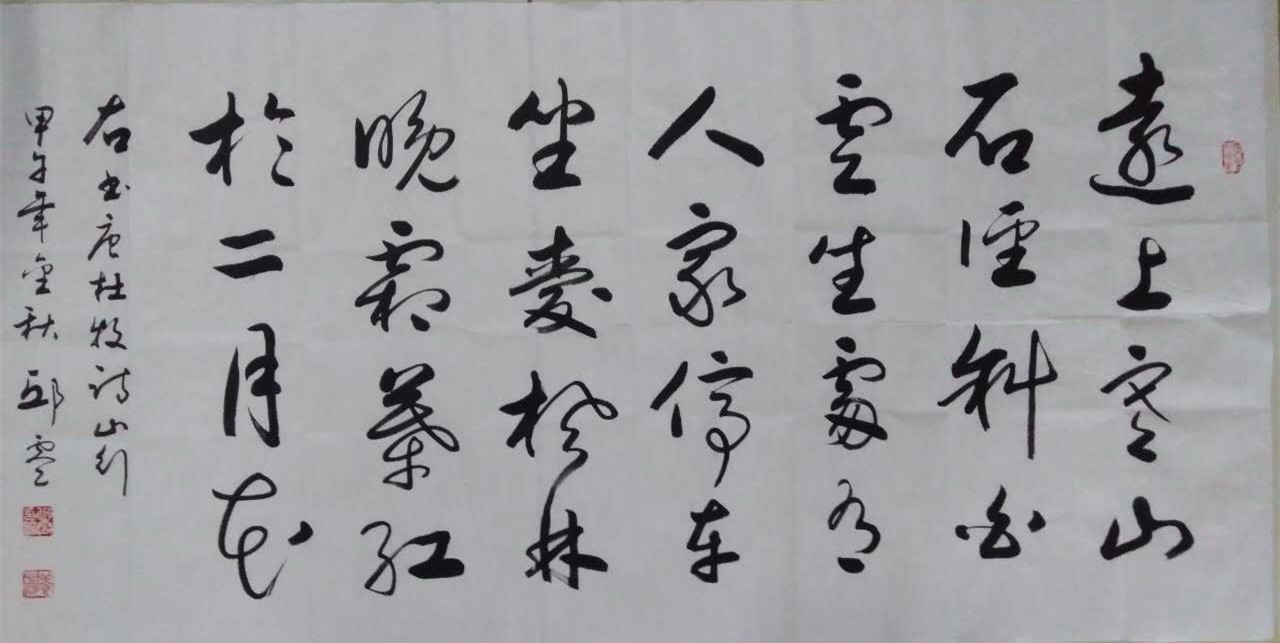 遠上寒山
石徑斜白
雲生處有
人家停車
坐愛楓林
晚霜葉紅
於二月花
右書唐杜牧詩山行
甲午年金秋邱雲